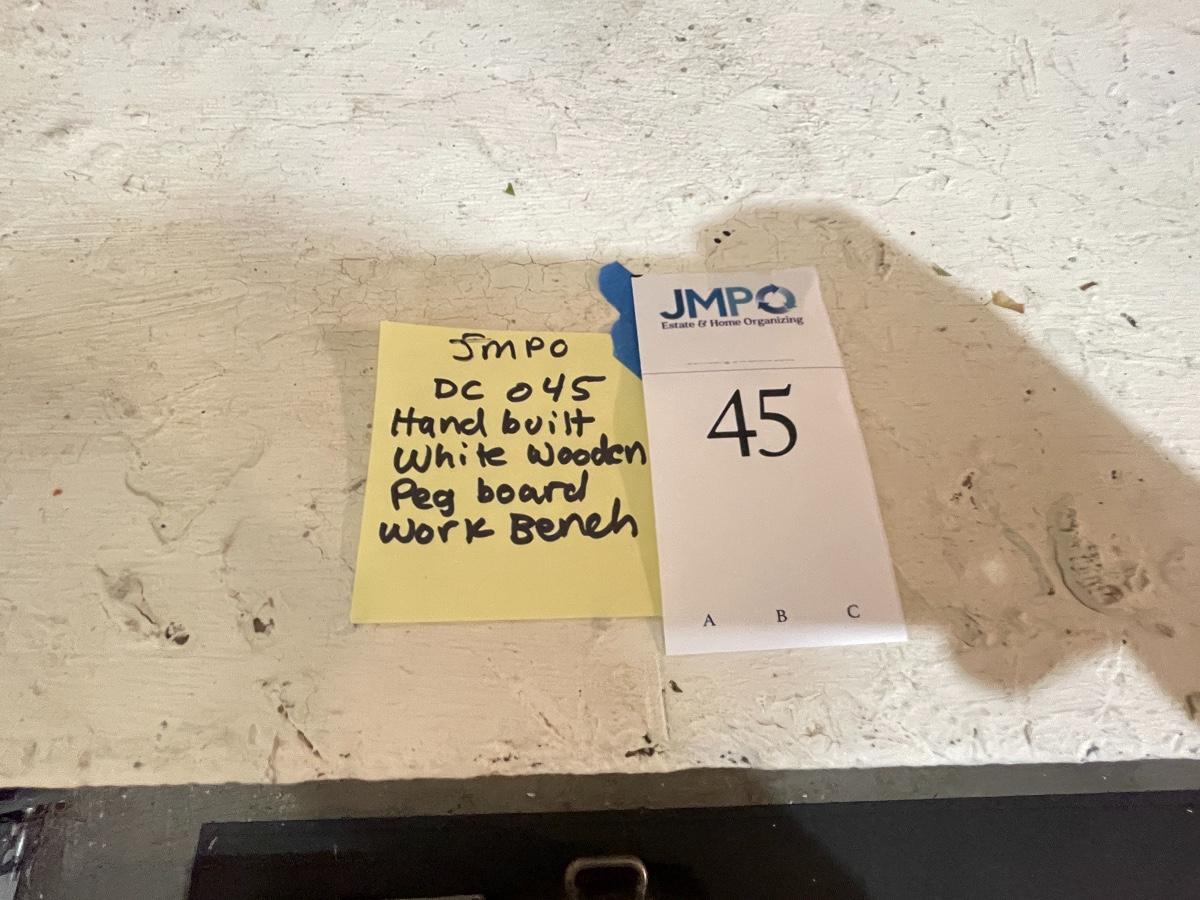 JMPO
DC 045
Hand built
White Wooden
Peg board
Work Bench
JMPO
Estate & Home Organizing
45
A B C